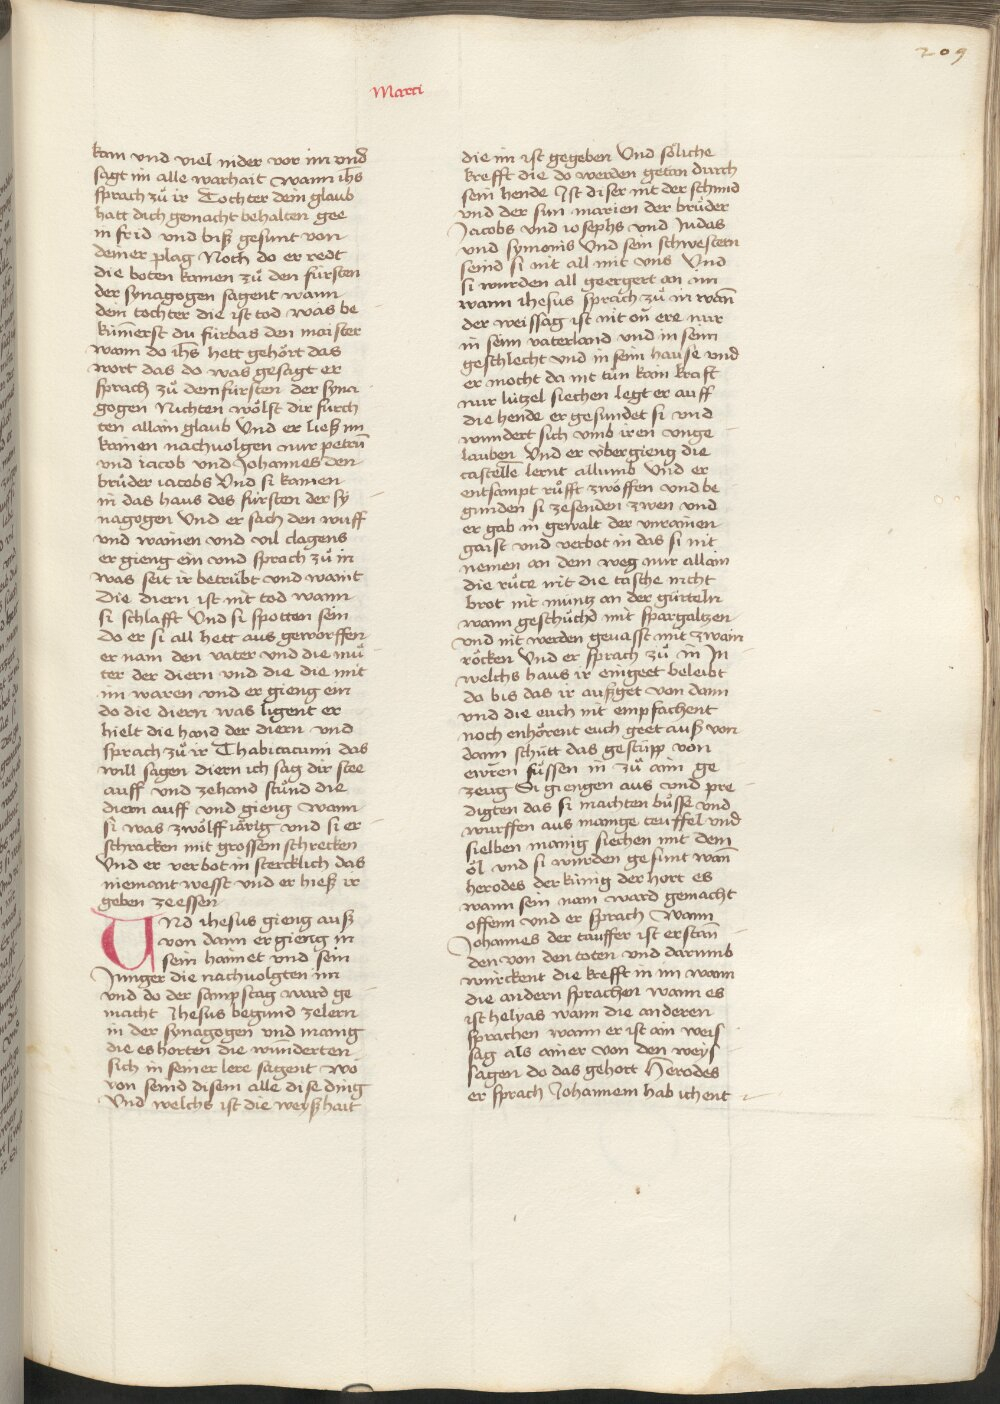 209
Marci
kam vnd viel nider vor im vnd
sagt im alle warhait Wann ihs
sprach zů ir Tochter dein glaub
hatt dich gemacht behalten gee
in frid vnd biß gesunt von
deiner plag Noch do er redt
die boten kamen zů den fürsten
der synagogen sagent wann
dein tochter die ist tod was be
kümerst du fürbas den maister
wann do ihs hett gehört das
wort das do was gesagt er
sprach zů dem fürsten der syna
gogen Nichten wölst dir furch
ten allain glaub Vnd er ließ im
kainen nachuolgen nur petrū
vnd iacob vnd Johannes den
brůder iacobs Vnd si kamen
in das haus des fürsten der sy
nagogen Vnd er sach den wuff
vnd wainen vnd vil clagens
er gieng ein vnd sprach zů in
was seit ir betrübt vnd waint
Die diern ist nit tod wann
si schlafft Vnd si spotten sein
do er si all hett aus geworffen
er nam den vater vnd die mů
ter der diern vnd die die mit
im waren vnd er gieng ein
do die diern was ligent er
hielt die hand der diern vnd
sprach zů ir Thabitacumi das
will sagen diern ich sag dir stee
auff vnd zehand stůnd die
diern auff vnd gieng wann
si was zwölff iärig vnd si er
schracken mit grossem schrecken
Vnd er verbot in stercklich das
niemant wesst vnd er hieß ir
geben ze essen
Vnd ihesus gieng auß
von dann er gieng in
sein haimet vnd sein
Junger die nachuolgten im
vnd do der sampstag ward ge
macht Jhesus begund zelern
in der synagogen vnd manig
die es horten die wunderten
sich in seiner lere sagent wo
von seind disem alle dise ding
Vnd welchs ist die weyßhait
die im ist gegeben Vnd söliche
krefft die do werden getan durch
sein hende Ist diser nit der schmid
vnd der sun marien der brůder
Jacobs vnd iosephs vnd Judas
vnd symonis Vnd sein schwestern
seind si nit all mit vns Vnd
si wurden all geergert an im
wann ihesus sprach zů in wañ
der weissag ist nit on ere nur
in seim vaterland vnd in seim
geschlecht vnd in seim hause vnd
er mocht da nit tůn kain kraft
nur lützel siechen legt er auff
die hende er gesundet si vnd
wundert sich vmb iren vnge
lauben Vnd er vbergieng die
castelle lernt allumb Vnd er
entsampt růfft zwölffen vnd be
gunden si zesenden zwen vnd
er gab in gewalt der vnrainen
gaist vnd verbot in das si nit
nemen an dem weg nur allain
die růte nit die tasche nicht
brot nit müntz an der gürteln
wann geschůchd mit spargalizen
vnd nit werden geuasst mit zwain
röcken Vnd er sprach zů in In
welchs haus ir eingeet beleibt
do bis das ir außget von dann
vnd die euch nit empfachent
noch enhörent euch geet auß von
dann schütt das gestüpp von
ewren füssen in zů aim ge
zeug Si giengen aus vnd pre
digten das si machten bůsse vnd
wurffen aus manige teuffel vnd
sielben manig siechen mit dem
öl vnd si wurden gesunt wañ
herodes der künig der hort es
wann sein nam ward gemacht
offenn vnd er sprach Wann
Johannes der tauffer ist erstan
den von den toten vnd darumb
würckent die krefft in im wann
die andern sprachen wann es
ist helyas wann die anderen
sprachen wann er ist ain weis
sag als ainer von den weys
sagen do das gehort Herodes
er sprach Johannem hab ich ent